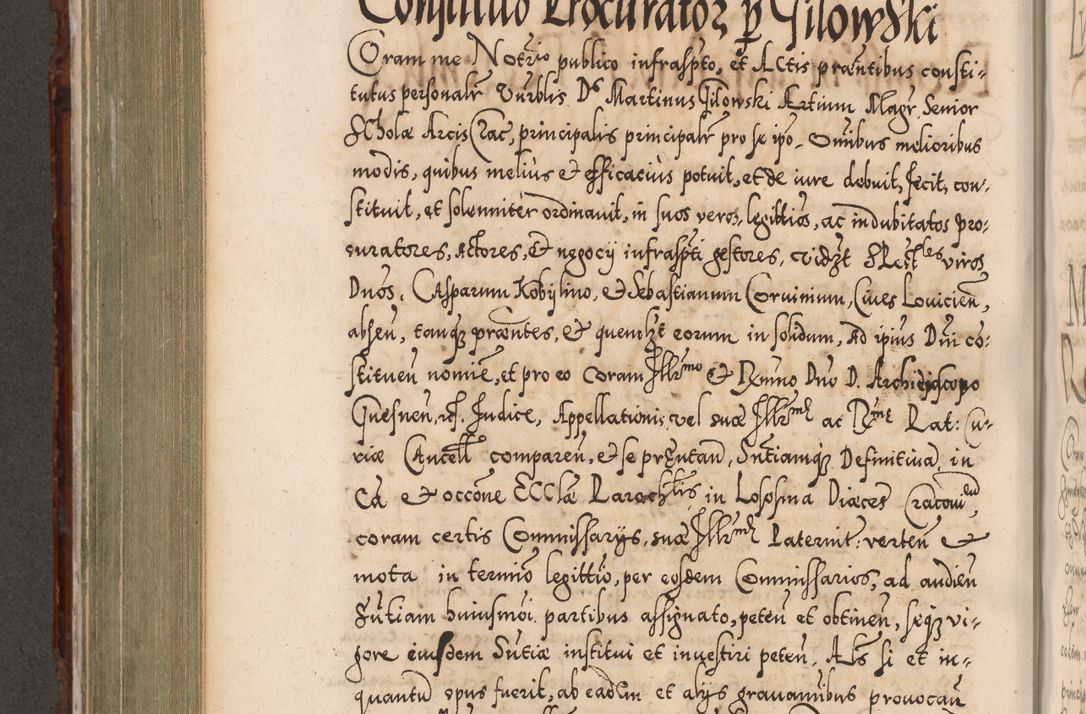 Constitutio Procurator p Gilowski
Coram me Notrio publico infrasspto, et Actis præntibus consti-
tutus personalr Vnrblis Ds Martinus Gilowski Artium Magr, Senior
Scholæ Arcis Crac, principalis principalr pro se ipo. Omibus melioribus
modis, quibus melius et efficacius potuit, et de iure debuit, fecit, con-
stituit, et solemniter ordinauit, in suos veros, legittios, ac indubitatos pro-
curatores, Actores, Et negocij infrasspti gestores, vidzt Spect les viros
Dnos, Casparum Kobijlino, et Sebastianum Coruinum, Ciues Louicien,
absen, tamqz præntes, Et quemlzt eorum in solidum, Ad ipius Dni co-
stituen nomie, et pro eo coram Illr mo et Rmno Dno D. Archiepiscopo
Gnesnen, rf. Judice, Appellationis, vel suæ Illr mæ ac R mæ Pat: Cu-
riæ Cancell comparen, et se præntand, Sntiamqz Definitiua, in
Ca et occone Ecclæ Paroch lis in Lososina Diæces Cracouien,
coram certis Commissarijs, suæ Illr mæ Paternit: verten et
mota in termino legittio, per eosdem Commissarios, ad audien
Sntiam huiusmoi partibus assignato, peten et obtinen, seqz vi-
gore eiusdem Sntiæ institui et inuestiri peten, Als si et in-
quantu opus fuerit, ab eadem et alijs grauaminibus prouocan